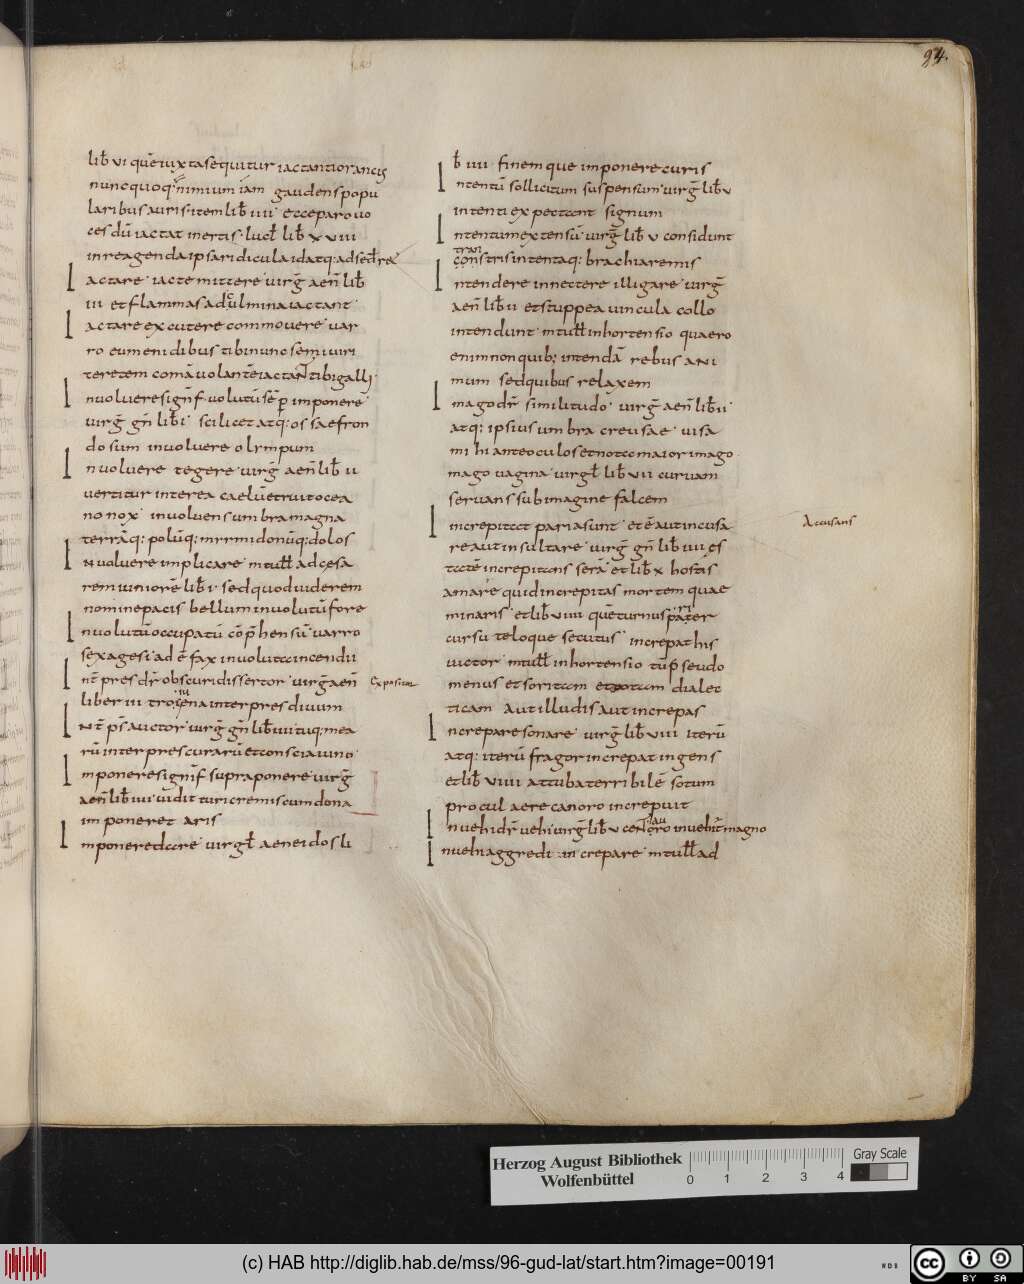 94.
lib̄ vi quē iuxta sequitur iactantior ancus
nunc quoq; nimium iam gaudens popu
laribus auris item lib̄ iiii et ceparo uo
ces dū iactat inertis lucł lib̄ xviii
in re agenda ipsa ridicula idatq: ad sed re
Iactare iacte mittere virḡ aen̄ lib̄
iii et flammas ad culmina iactant
Iactare excutere commovere var
ro eumenidibus tibi nunc semiviri
teretem comā volantē iactant tibi galli
Involvere signf volutū sēp imponere
virḡ gn̄ lib̄ i scilicet atq: ossae fron
dosum involvere olympum
Involvere tegere virḡ aen̄ lib̄ ii
vertitur interea caelū et ruit ocea
no nox involvens umbra magna
terrāq: polūq: mirmidonūq: dolos
Involvere implicare mtull ad cesa
rem iuniorē lib̄ i sed quod viderem
nomine pacis bellum involutū fore
Involutū occupatū cōp̄hensū varro
sexagesi ad ē fax involuta incendii
Int̄ pres dr̄ obscuri dissertor virḡ aen̄
Expositor
liber iii troiugena interpres divum
Int̄ p̄s auctor virḡ gn̄ lib̄ iiii tuq; mea
rū interpres curarū et conscia iuno
Imponere signf supra ponere virḡ
aen̄ lib̄ iiii vidit turicremis cum dona
imponeret aris
Imponere dare virgł aeneidos li
b̄ iiii finem que imponere curis
Intentū sollicitum suspensum virḡ lib̄ v
intenti expectant signum
Intentum extensū virḡ lib̄ v considunt
tran
constris intentaq: brachia remis
Intendere innectere illigare virḡ
aen̄ lib̄ ii et stuppea vincula collo
intendunt mtull in hortensio quaero
enim non quib; intendā rebus ani
mum sed quibus relaxem
Imago dr̄ similitudo virḡ aen̄ lib̄ ii
atq: ipsius umbra creusae visa
mihi ante oculos et nota maior imago
Imago vagina virgł lib̄ vii curvam
servans sub imagine falcem
Increpitat paria sunt et ē aut incusa
Accusans
re aut insultare virḡ gn̄ lib̄ iiii es
tatē increpitans serā et lib̄ x hostis
amare quid increpitas mortem quae
minaris et lib̄ viiii quē turnus pariter
cursu teloque secutus increpat his
victor mtull in hortensio tūp̄ seudo
menus et soritam et totam dialec
ticam aut illudis aut increpas
Increpare sonare virḡ lib̄ viii iterū
atq: iterū fragor increpat ingens
et lib̄ viiii at tuba terribilē sotum
procul aere canoro increpuit
Invehi dr̄ vehi virḡ lib̄ v centauro invehit magno
Invehi aggredi increpare mtull ad
Herzog August Bibliothek
Wolfenbüttel
0 1 2 3 4
Gray Scale
(c) HAB http://diglib.hab.de/mss/96-gud-lat/start.htm?image=00191
WDB
cc BY SA